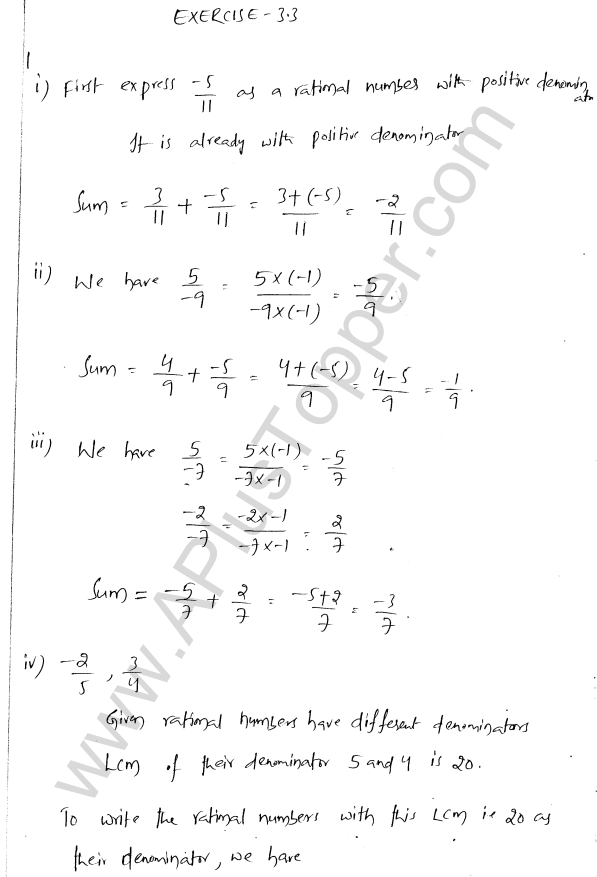 EXERCISE - 3.3
1
i) First express -5/11 as a rational number with positive denominator
It is already with positive denominator
Sum = 3/11 + -5/11 = 3+(-5)/11 = -2/11
ii) We have 5/-9 = 5×(-1)/-9×(-1) = -5/9.
Sum = 4/9 + -5/9 = 4+(-5)/9 = 4-5/9 = -1/9.
iii) We have 5/-7 = 5×(-1)/-7×-1 = -5/7
-2/-7 = -2×-1/-7×-1 = 2/7.
Sum = -5/7 + 2/7 = -5+2/7 = -3/7.
iv) -2/5, 3/4
Given rational numbers have different denominators
LCM of their denominator 5 and 4 is 20.
To write the rational numbers with this LCM ie 20 as
their denominator, we have
www.APlusTopper.com